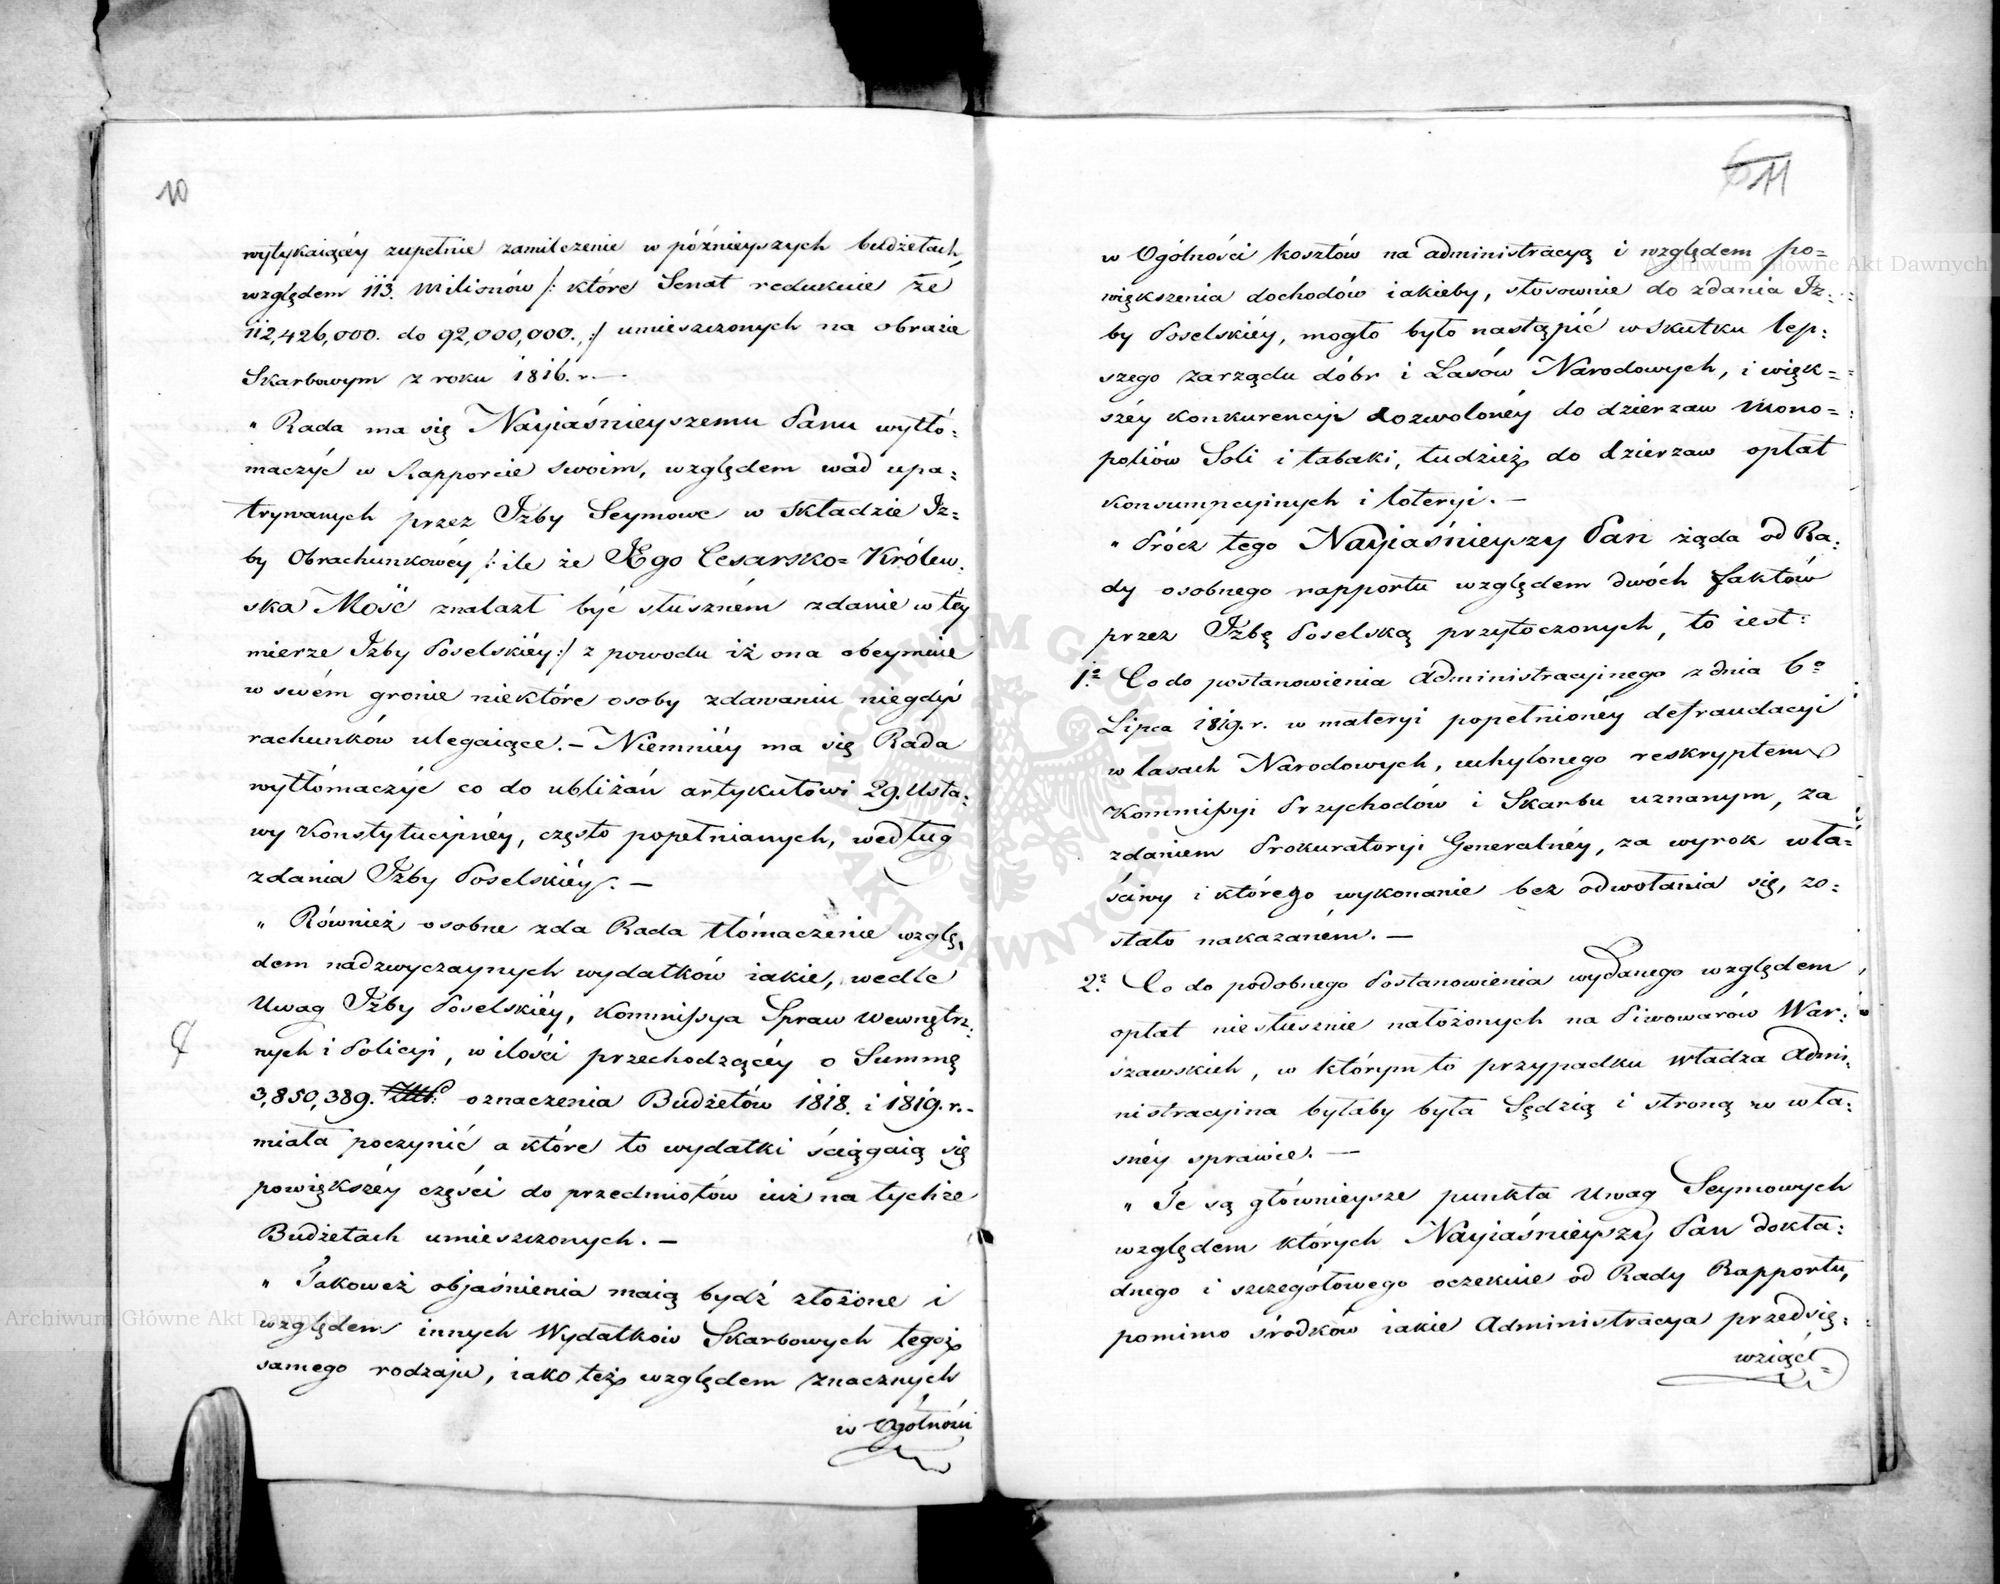 10
wytykaiącéy zupełnie zamilczenie w późnieyszych budżetach,
względem 113. Milionów /: które Senat redukuie ze
112,426,000. do 92,000,000. :/ umieszczonych na obrazie
Skarbowym z roku 1816. r. —
„ Rada ma się Nayiaśnieyszemu Panu wytłó=
maczyć w Rapporcie swoim, względem wad upa=
trywanych przez Izby Seymowe w składzie Iz=
by Obrachunkowéy /: ile że JEgo Cesarsko=Królew=
ska Mość znalazł być słuszném zdanie w téy
mierze Izby Poselskiéy :/ z powodu iż ona obeymuie
w swém gronie niektóre osoby zdawaniu niegdyś
rachunków ulegaiące. — Niemniéy ma się Rada
wytłómaczyć co do ubliżań artykułowi 29. Usta=
wy Konstytucyinéy, często popełnianych, według
zdania Izby Poselskiéy. —
„ Również osobne zda Rada tłómaczenie wzglę=
dem nadzwyczaynych wydatków iakie, wedle
Uwag Izby Poselskiéy, Kommissya Spraw Wewnętrz=
nych i Policyi, w ilości przechodzącéy o Summę
3,850,389. oznaczenia Budżetów 1818. i 1819. r. —
miała poczynić a które to wydatki ściągaią się
powiększéy części do przedmiotów iuż na tychże
Budżetach umieszczonych. —
„ Jakoweż objaśnienia maią bydź złożone i
względem innych Wydatków Skarbowych tegoż
samego rodzaju, iako też względem znacznych
w Ogólności
11
w Ogólności kosztów na administracyą i względem po=
większenia dochodów iakieby, stosownie do zdania Iz=
by Poselskiéy, mogło było nastąpić w skutku lep=
szego zarządu dóbr i Lasów Narodowych, i więk=
széy konkurencyi dozwolonéy do dzierzaw Mono=
poliów Soli i tabaki, tudzież do dzierzaw opłat
konsumpcyinych i loteryi. —
„ Prócz tego Nayiaśnieyszy Pan żąda od Ra=
dy osobnego rapportu względem dwóch faktów
przez Izbę Poselską przytoczonych, to iest:
1º. Co do postanowienia Administracyinego z dnia 6º
Lipca 1819. r. w materyi popełnionéy defraudacyi
w lasach Narodowych, uchylonego reskryptem
Kommissyi Przychodów i Skarbu uznanym, za
zdaniem Prokuratoryi Generalnéy, za wyrok wła=
ściwy i którego wykonanie bez odwołania się, zo=
stało nakazaném. —
2º. Co do podobnego Postanowienia wydanego względem
opłat niesłusznie nałożonych na Piwowarów War=
szawskich, w którym to przypadku władza Admi=
nistracyina byłaby była Sędzią i stroną w wła=
snéy sprawie. —
„ Te są głównieysze punkta Uwag Seymowych
względem których Nayiaśnieyszy Pan dokła=
dnego i szczegółowego oczekuie od Rady Rapportu,
pomimo środków iakie Administracya przedsię=
wziąć
Archiwum Główne Akt Dawnych
Archiwum Główne Akt Dawnych
ARCHIWUM GŁÓWNE AKT DAWNYCH